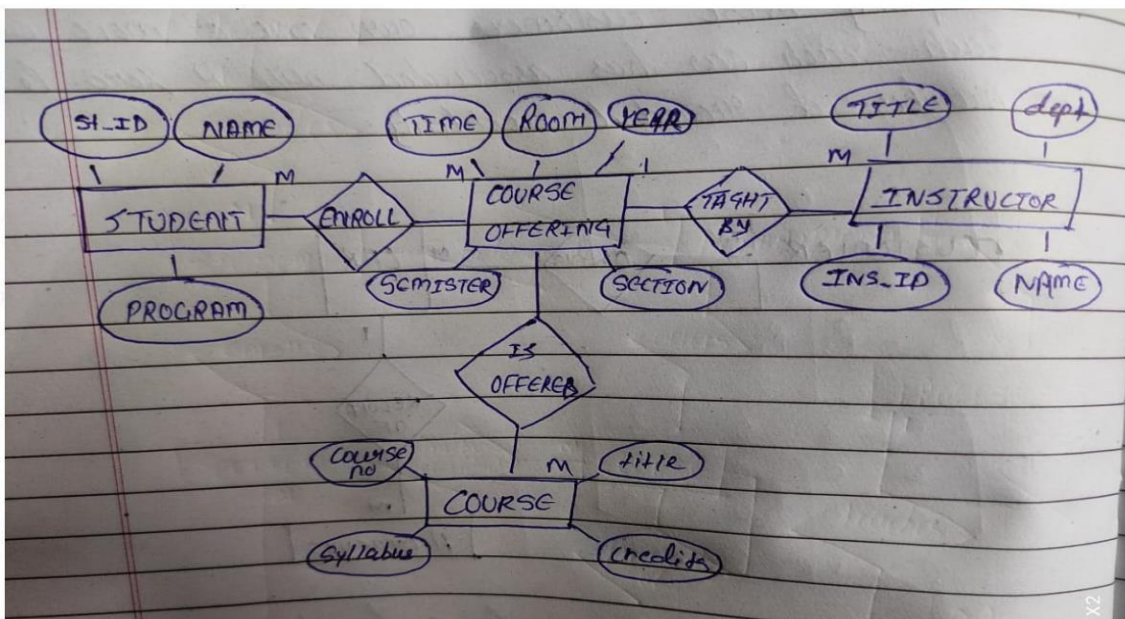 St_ID NAME TIME ROOM YEAR TITLE dept
M M 1 M
STUDENT ENROLL COURSE OFFERING TAGHT BY INSTRUCTOR
PROGRAM SEMISTER SECTION INS_ID NAME
IS
OFFERED
Course no M title
COURSE
Syllabus credits
X2